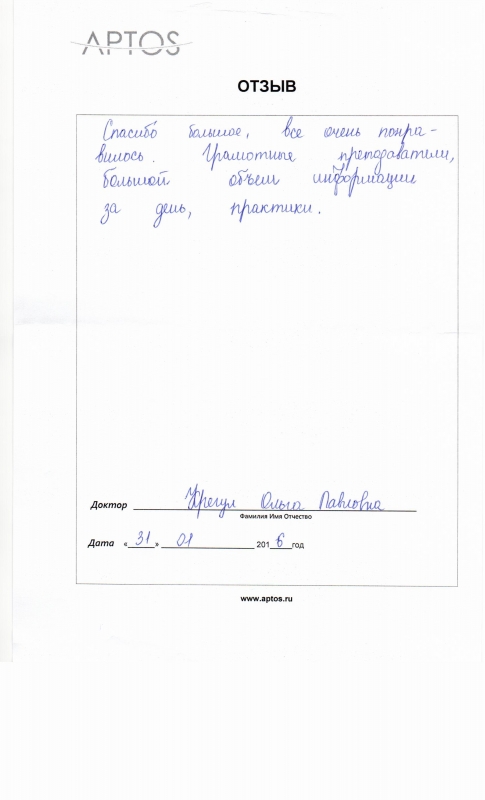 APTOS
ОТЗЫВ
Спасибо большое, все очень понра-
вилось. Грамотные преподаватели,
большой объем информации
за день, практики.
Доктор Ольга Павловна
Фамилия Имя Отчество
Дата «31» 01 2016 год
www.aptos.ru